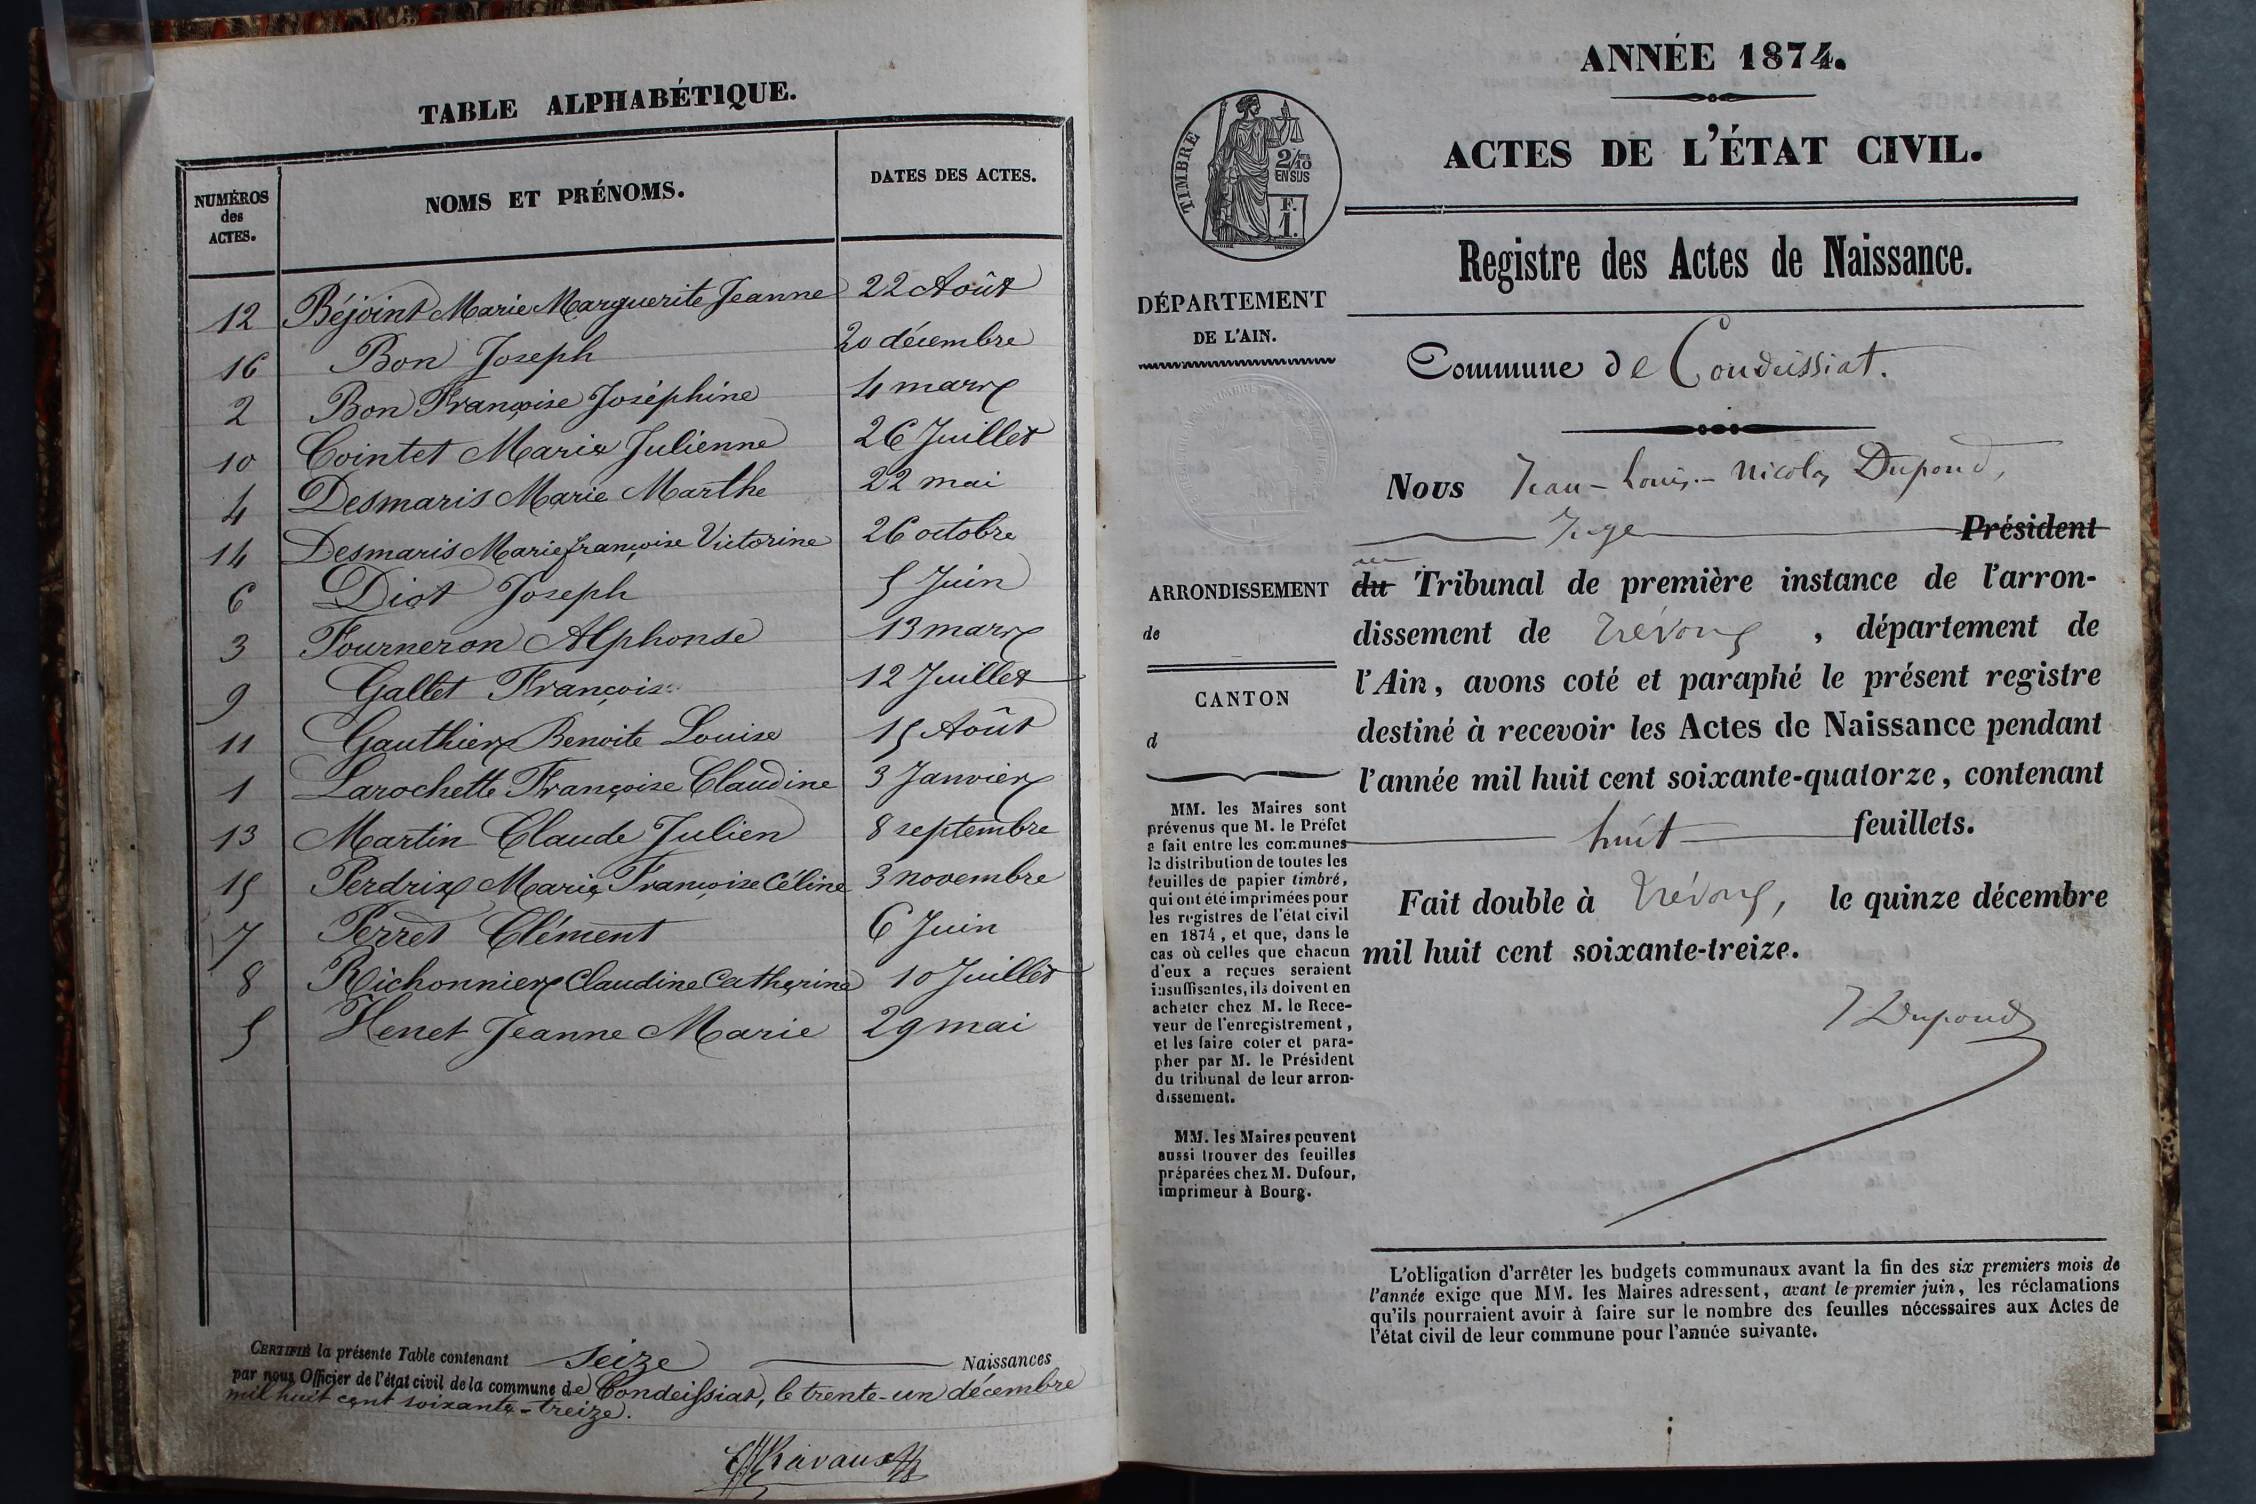 TABLE ALPHABÉTIQUE.
NUMÉROS des ACTES. NOMS ET PRÉNOMS. DATES DES ACTES.
12 Béjoint Marie Marguerite Jeanne 22 Août
16 Bon Joseph 20 décembre
2 Bon Françoise Joséphine 4 mars
10 Cointet Marie Julienne 26 Juillet
4 Desmaris Marie Marthe 22 mai
14 Desmaris Marie françoise Victorine 26 octobre
6 Diot Joseph 5 Juin
3 Fourneron Alphonse 13 mars
9 Gallet François 12 Juillet
11 Gauthier Benoite Louise 15 Août
1 Larochette Françoise Claudine 3 Janvier
13 Martin Claude Julien 8 septembre
15 Perdrix Marie Françoise Céline 3 novembre
7 Perret Clément 6 Juin
8 Richonnier Claudine Catherine 10 Juillet
5 Henet Jeanne Marie 29 mai
CERTIFIÉ la présente Table contenant seize Naissances
par nous Officier de l'état civil de la commune de Condeissiat, le trente-un décembre
mil huit cent soixante-treize.
ANNÉE 1874.
ACTES DE L'ÉTAT CIVIL.
TIMBRE
2/10
EN SUS
F.
1.
Registre des Actes de Naissance.
DÉPARTEMENT
DE L'AIN.
Commune de Condeissiat.
Nous Jean-Louis-Nicolas Dupond,
Juge Président
au du Tribunal de première instance de l'arron-
dissement de Trévoux, département de
l'Ain, avons coté et paraphé le présent registre
destiné à recevoir les Actes de Naissance pendant
l'année mil huit cent soixante-quatorze, contenant
huit feuillets.
Fait double à Trévoux, le quinze décembre
mil huit cent soixante-treize.
J Dupond
ARRONDISSEMENT
de
CANTON
d
MM. les Maires sont
prévenus que M. le Préfet
a fait entre les communes
la distribution de toutes les
feuilles de papier timbré,
qui ont été imprimées pour
les registres de l'état civil
en 1874, et que, dans le
cas où celles que chacun
d'eux a reçues seraient
insuffisantes, ils doivent en
acheter chez M. le Rece-
veur de l'enregistrement,
et les faire coter et para-
pher par M. le Président
du tribunal de leur arron-
dissement.
MM. les Maires peuvent
aussi trouver des feuilles
préparées chez M. Dufour,
imprimeur à Bourg.
L'obligation d'arrêter les budgets communaux avant la fin des six premiers mois de
l'année exige que MM. les Maires adressent, avant le premier juin, les réclamations
qu'ils pourraient avoir à faire sur le nombre des feuilles nécessaires aux Actes de
l'état civil de leur commune pour l'année suivante.